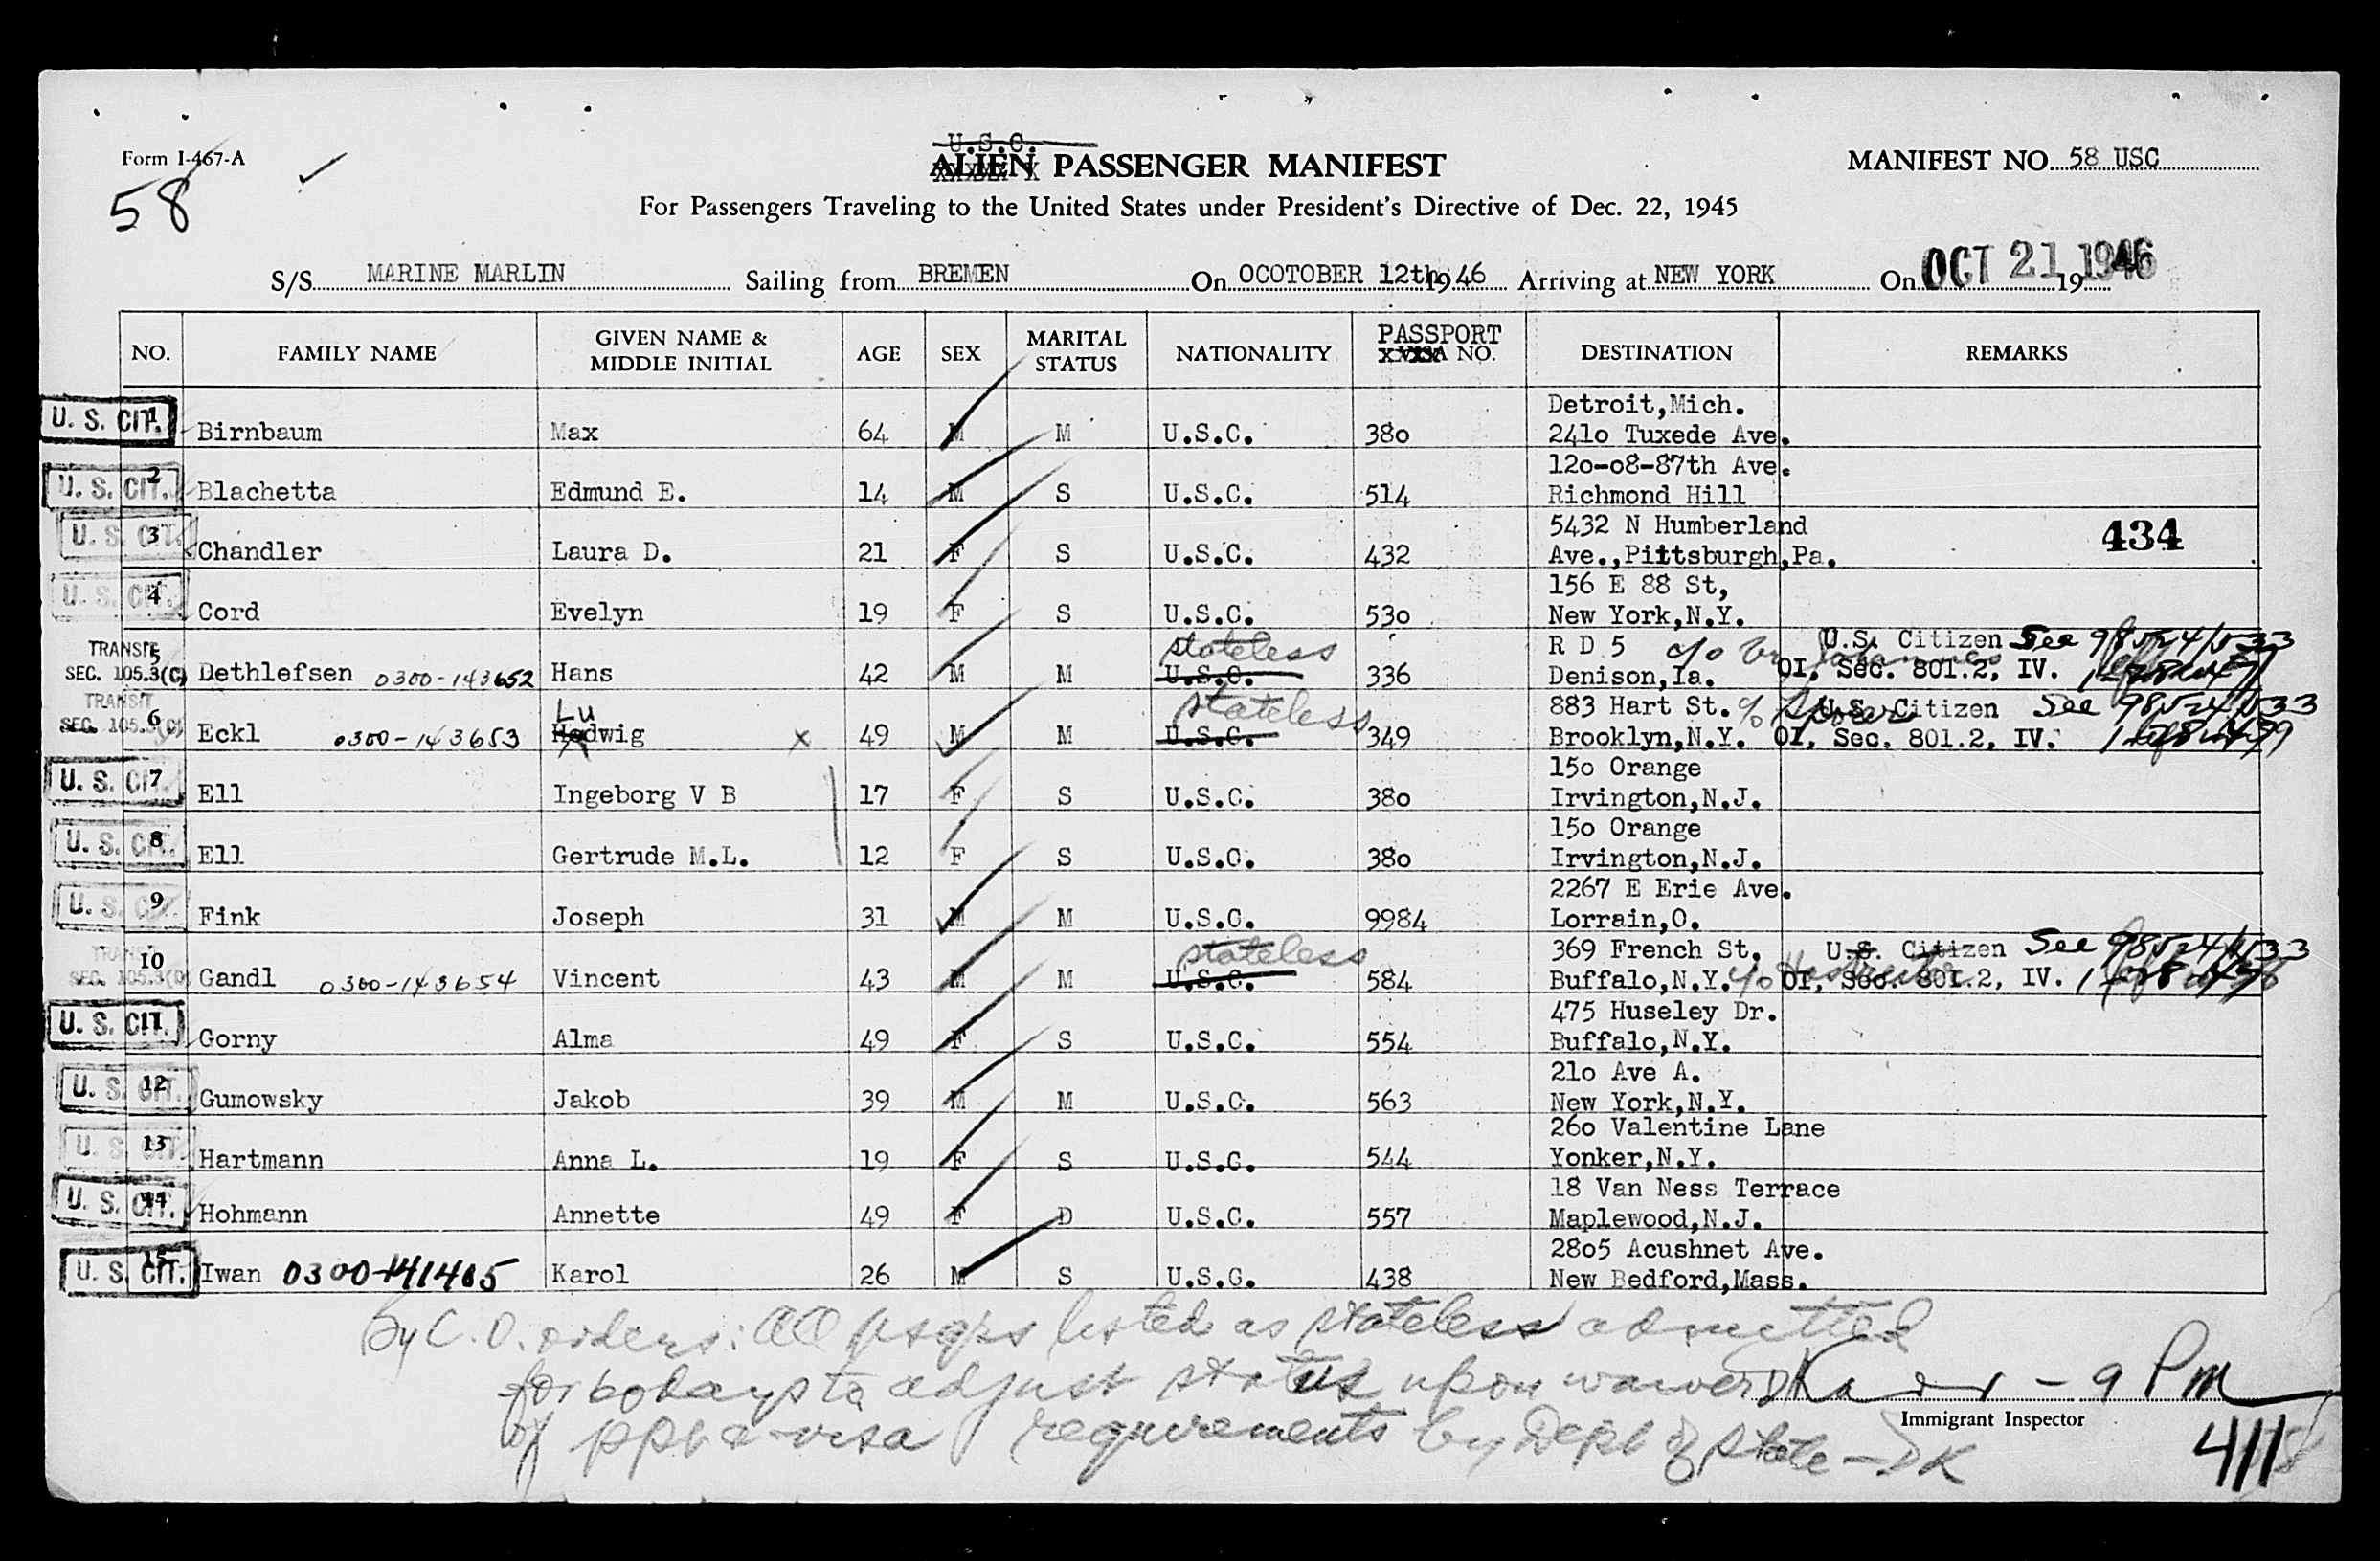 U.S.C.
Form I-467-A
ALIEN PASSENGER MANIFEST
MANIFEST NO. 58 USC
58
For Passengers Traveling to the United States under President's Directive of Dec. 22, 1945
S/S MARINE MARLIN Sailing from BREMEN On OCOTOBER 12th 19 46 Arriving at NEW YORK On OCT 21 1946 19
NO. FAMILY NAME GIVEN NAME & MIDDLE INITIAL AGE SEX MARITAL STATUS NATIONALITY PASSPORT VISA NO. DESTINATION REMARKS
Detroit,Mich.
U. S. CIT. 1 Birnbaum Max 64 M M U.S.C. 380 2410 Tuxede Ave.
120-08-87th Ave.
U. S. CIT. 2 Blachetta Edmund E. 14 M S U.S.C. 514 Richmond Hill
5432 N Humberland
434
U. S. CIT. 3 Chandler Laura D. 21 F S U.S.C. 432 Ave.,Pittsburgh,Pa.
156 E 88 St,
U. S. CIT. 4 Cord Evelyn 19 F S U.S.C. 530 New York,N.Y.
TRANSIT 5 stateless R D 5 c/o U.S. Citizen See 98524/533
SEC. 105.3(C) Dethlefsen 0300-143652 Hans 42 M M U.S.C. 336 Denison,Ia. OI, Sec. 801.2, IV.
TRANSIT 6 Lu stateless 883 Hart St. c/o U.S. Citizen See 98524/533
SEC. 105.3(C) Eckl 0300-143653 Hedwig x 49 M M U.S.C. 349 Brooklyn,N.Y. OI, Sec. 801.2, IV.
150 Orange
U. S. CIT. 7 Ell Ingeborg V B 17 F S U.S.C. 380 Irvington,N.J.
150 Orange
U. S. CIT. 8 Ell Gertrude M.L. 12 F S U.S.C. 380 Irvington,N.J.
2267 E Erie Ave.
U. S. CIT. 9 Fink Joseph 31 M M U.S.C. 9984 Lorrain,O.
TRANSIT 10 stateless 369 French St. U.S. Citizen See 98524/533
SEC. 105.3(C) Gandl 0300-143654 Vincent 43 M M U.S.C. 584 Buffalo,N.Y. c/o OI, Sec. 801.2, IV.
475 Huseley Dr.
U. S. CIT. 11 Gorny Alma 49 F S U.S.C. 554 Buffalo,N.Y.
210 Ave A.
U. S. CIT. 12 Gumowsky Jakob 39 M M U.S.C. 563 New York,N.Y.
260 Valentine Lane
U. S. CIT. 13 Hartmann Anna L. 19 F S U.S.C. 544 Yonker,N.Y.
18 Van Ness Terrace
U. S. CIT. 14 Hohmann Annette 49 F D U.S.C. 557 Maplewood,N.J.
2805 Acushnet Ave.
U. S. CIT. 15 Iwan 0300-141405 Karol 26 M S U.S.C. 438 New Bedford,Mass.
By C.O. orders: All psgrs listed as stateless admitted
for 60 days to adjust status upon waiver - 9 PM
Immigrant Inspector
of ppt & visa requirements by Dept of State - DK
411